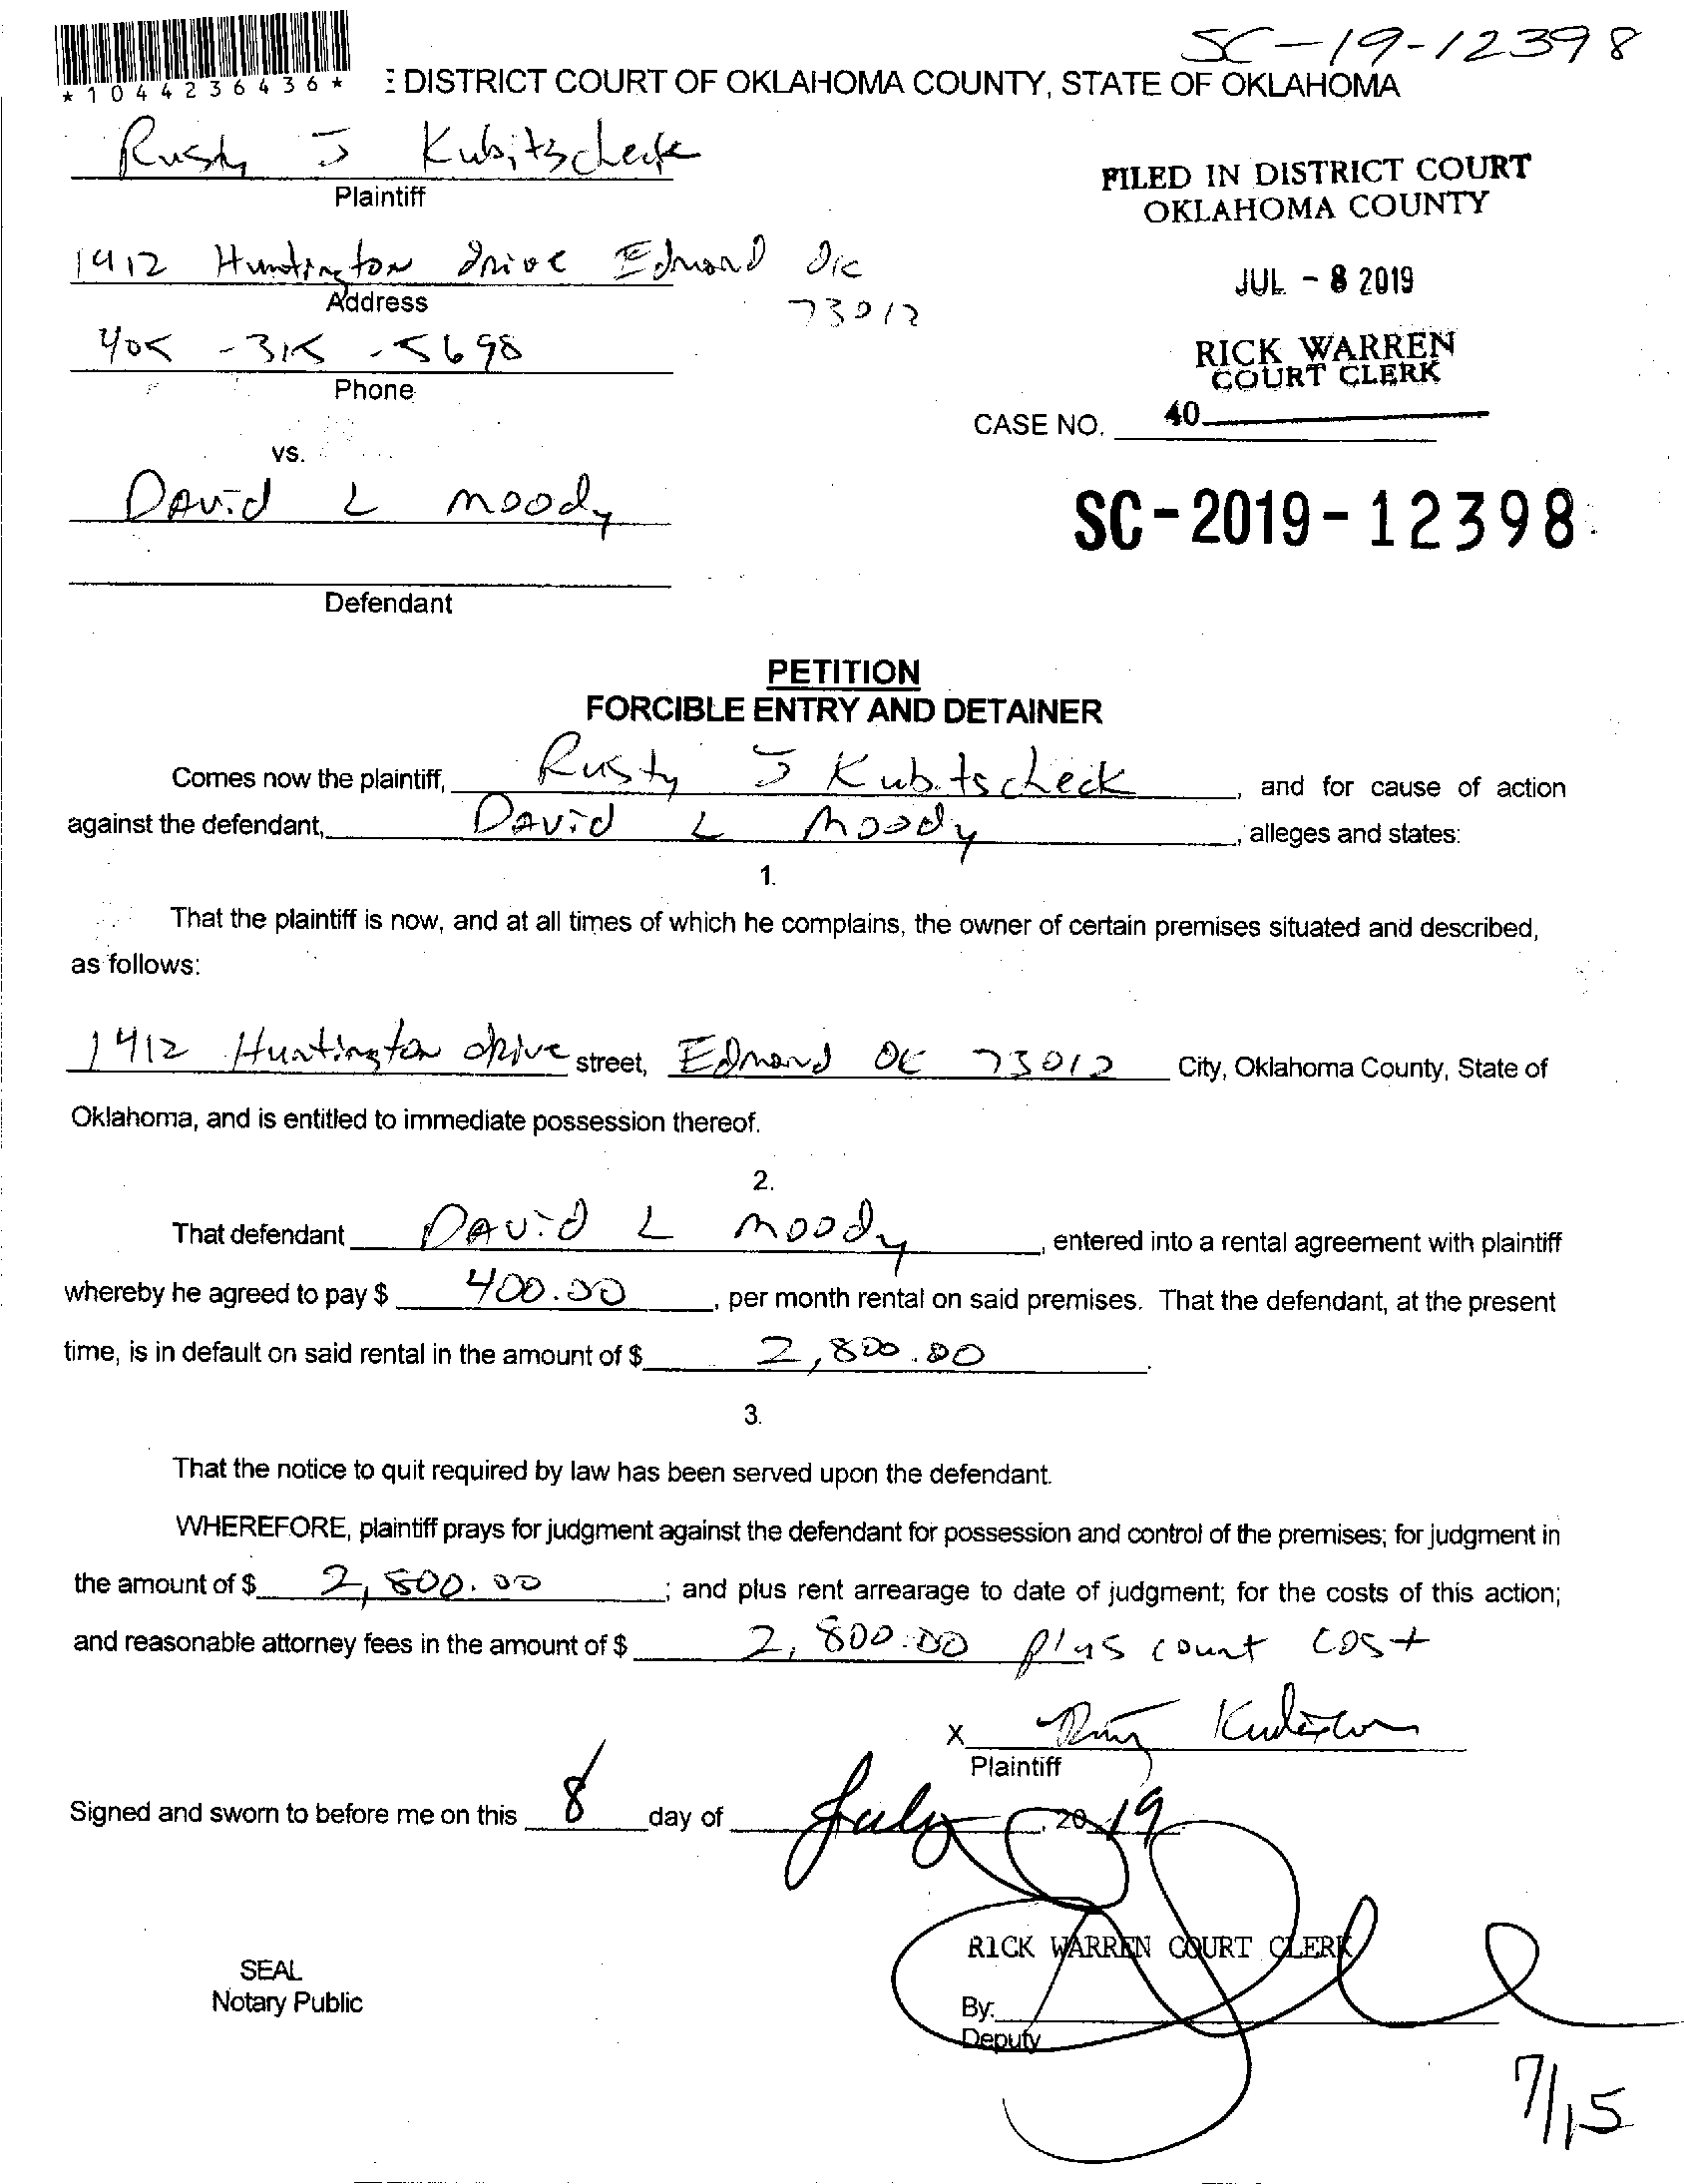 SC-19-12398
*1044236436*
E DISTRICT COURT OF OKLAHOMA COUNTY, STATE OF OKLAHOMA
Rusty J Kubitscheck
Plaintiff
FILED IN DISTRICT COURT
OKLAHOMA COUNTY
1412 Huntington Drive Edmond OK
Address
73012
JUL - 8 2019
405-315-5698
Phone
RICK WARREN
COURT CLERK
CASE NO. 40
vs.
David L Moody
SC-2019-12398
Defendant
PETITION
FORCIBLE ENTRY AND DETAINER
Comes now the plaintiff, Rusty J Kubitscheck, and for cause of action
against the defendant, David L Moody, alleges and states:
1.
That the plaintiff is now, and at all times of which he complains, the owner of certain premises situated and described,
as follows:
1412 Huntington drive street, Edmond OK 73012 City, Oklahoma County, State of
Oklahoma, and is entitled to immediate possession thereof.
2.
That defendant David L Moody, entered into a rental agreement with plaintiff
whereby he agreed to pay $ 400.00, per month rental on said premises. That the defendant, at the present
time, is in default on said rental in the amount of $ 2,800.00.
3.
That the notice to quit required by law has been served upon the defendant.
WHEREFORE, plaintiff prays for judgment against the defendant for possession and control of the premises; for judgment in
the amount of $ 2,800.00; and plus rent arrearage to date of judgment; for the costs of this action;
and reasonable attorney fees in the amount of $ 2,800.00 plus court cost
X
Plaintiff
Signed and sworn to before me on this 8 day of July, 2019
RICK WARREN COURT CLERK
SEAL
Notary Public
By:
Deputy
7/15